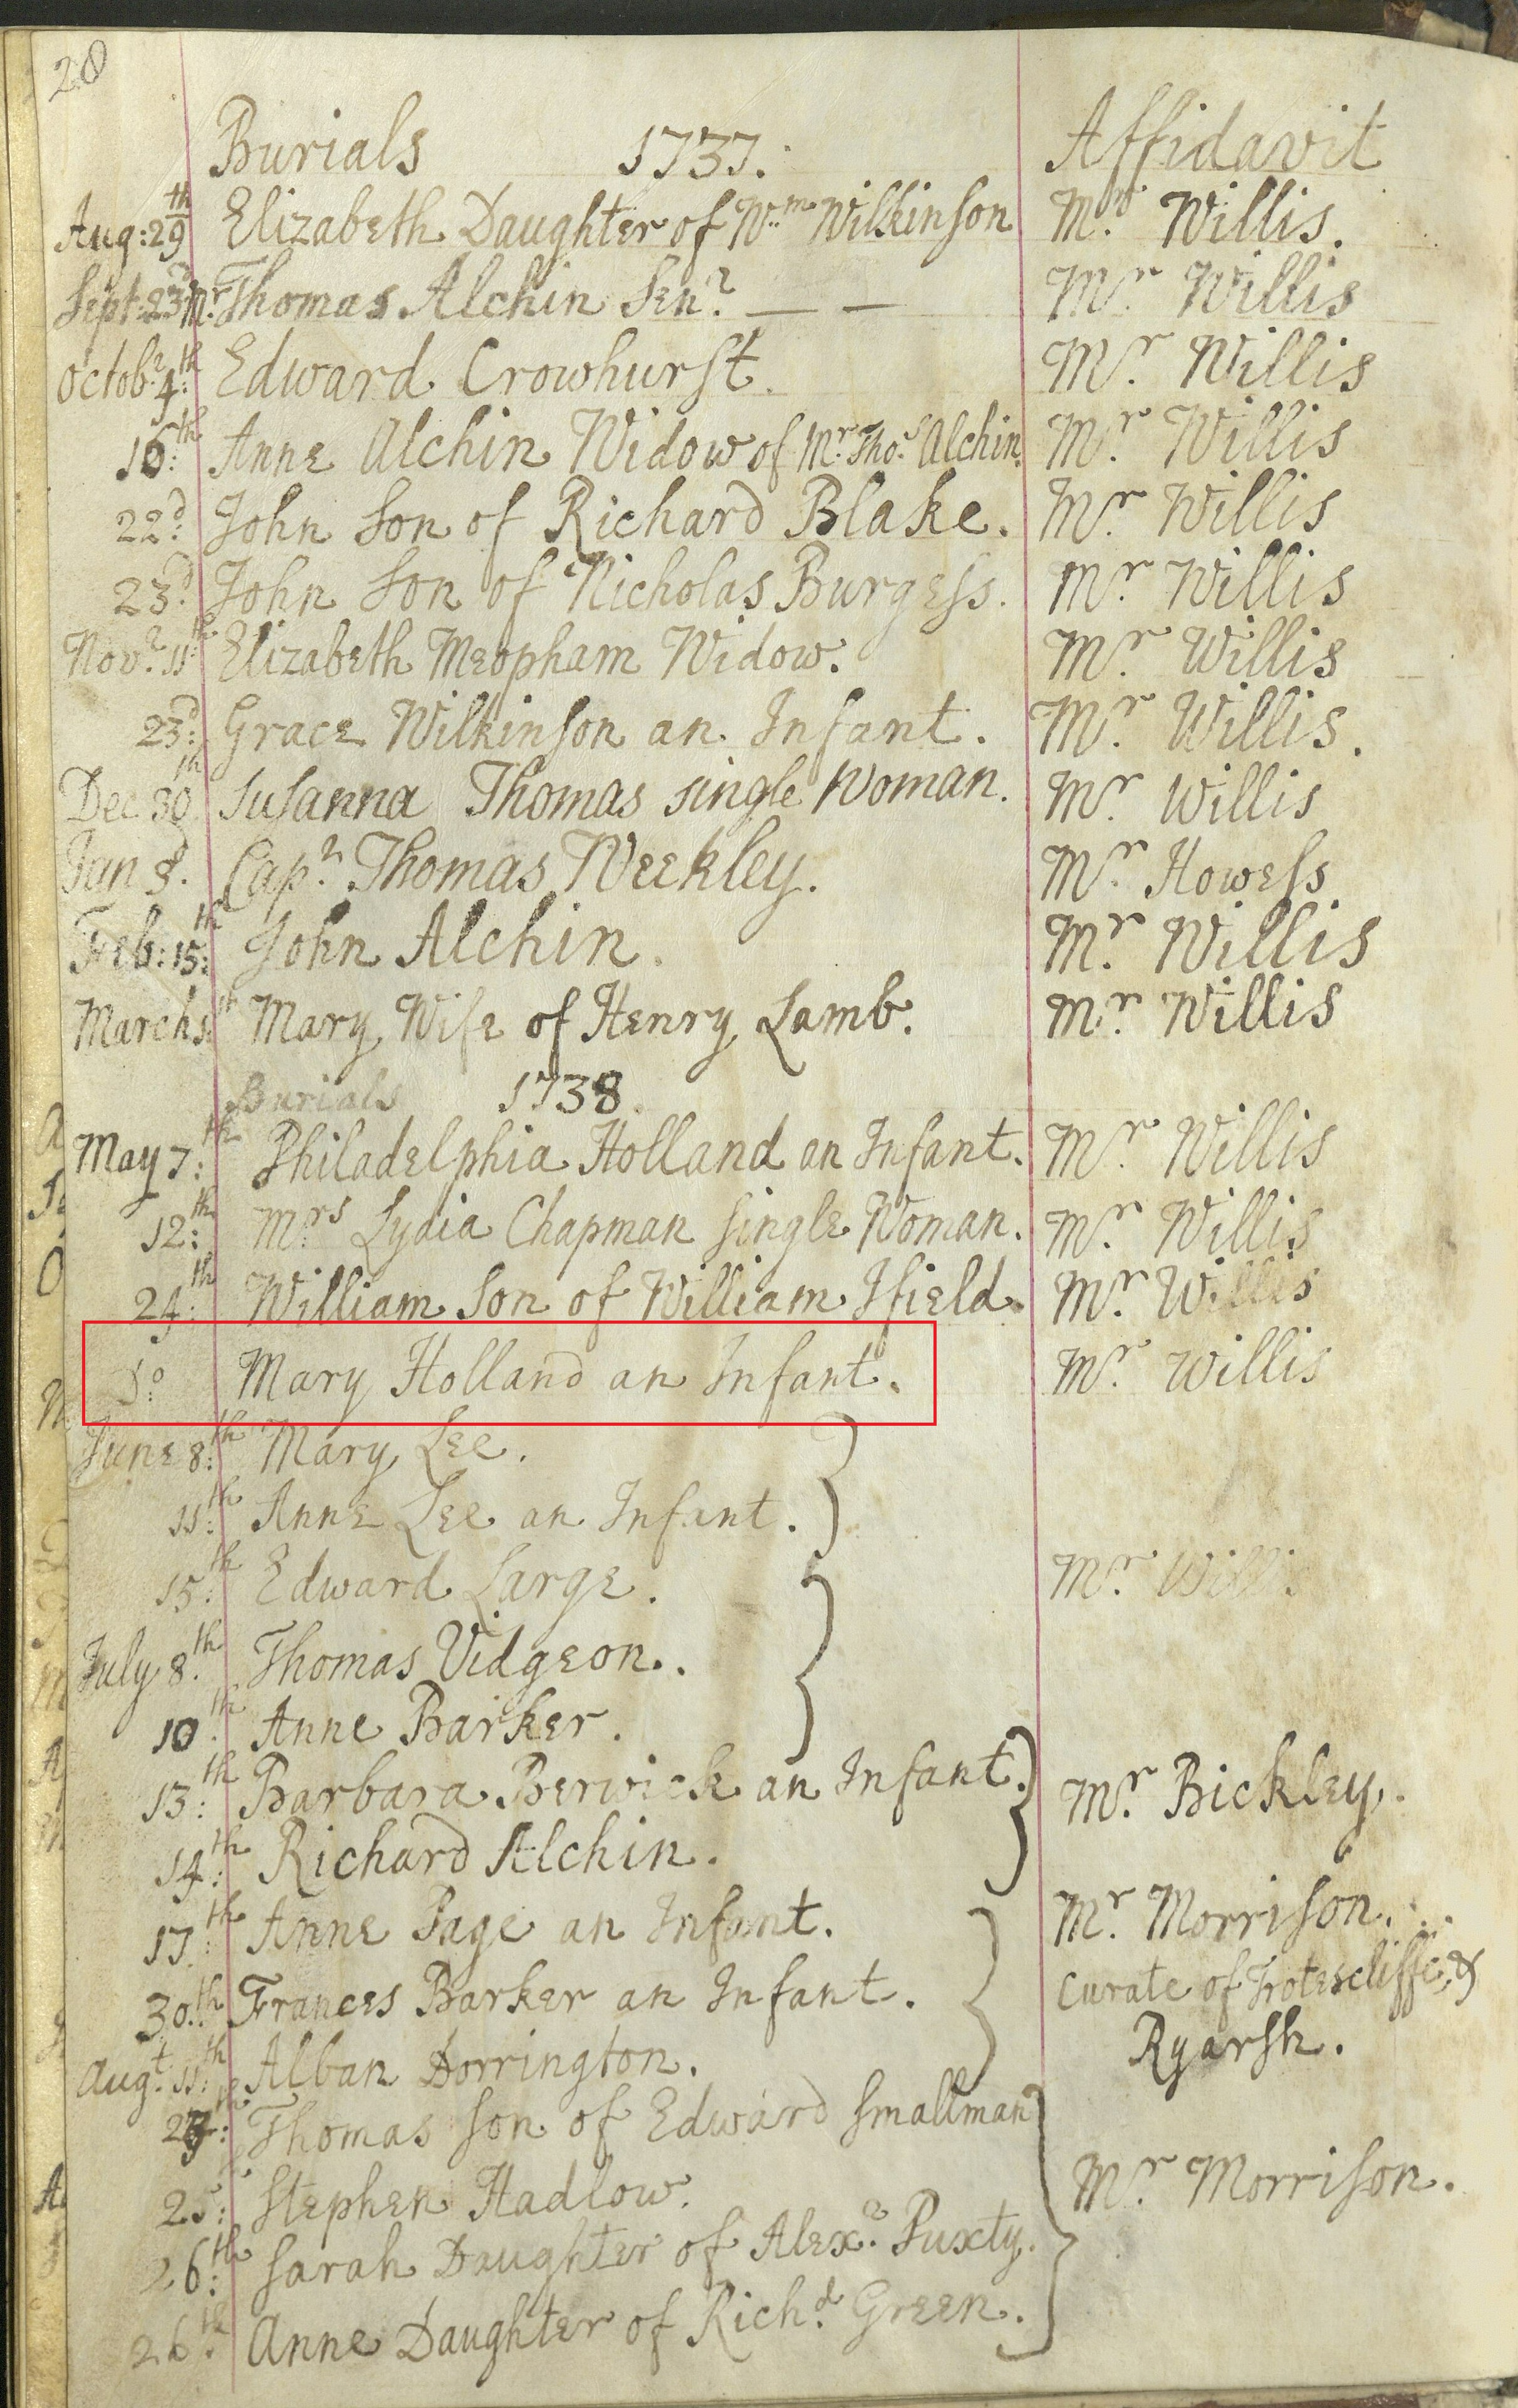 20
Burials 1737. Affidavit
Aug: 29th Elizabeth Daughter of Wm Wilkinson Mr. Willis.
Sept: 23d Mr. Thomas Alchin Senr. — — Mr. Willis
Octobr. 4th: Edward Crowhurst. Mr. Willis
10th: Anne Alchin Widow of Mr. Thos. Alchin. Mr. Willis
22d: John Son of Richard Blake. Mr. Willis
23d: John Son of Nicholas Burgess. Mr. Willis
Novr. 11th: Elizabeth Meopham Widow. Mr. Willis
23d: Grace Wilkinson an Infant. Mr. Willis.
Dec 30th Susanna Thomas single Woman. Mr. Willis
Jan 3d. Capn. Thomas Weekley. Mr. Howess
Feb: 15th: John Alchin. Mr. Willis
March Mary Wife of Henry Lamb. Mr. Willis
Burials 1738.
May 7th: Philadelphia Holland an Infant. Mr. Willis
12th: Mrs. Lydia Chapman single Woman. Mr. Willis
24th: William Son of William Ifield. Mr. Willis
Mary Holland an Infant. Mr. Willis
June 8th: Mary Lee.
11th: Anne Lee an Infant.
15th: Edward Large. Mr. Willis
July 8th. Thomas Vidgeon.
10th. Anne Barker.
13th: Barbara Berwick an Infant. Mr. Bickley.
14th: Richard Alchin.
17th: Anne Page an Infant. Mr. Morrison.
30th: Frances Barker an Infant. Curate of Trotescliffe &
Augt. 11th: Alban Dorrington. Ryarsh.
Thomas son of Edward Smallman
25: Stephen Hadlow. Mr. Morrison.
26th: Sarah Daughter of Alexr. Puxty.
26th: Anne Daughter of Richd. Green.